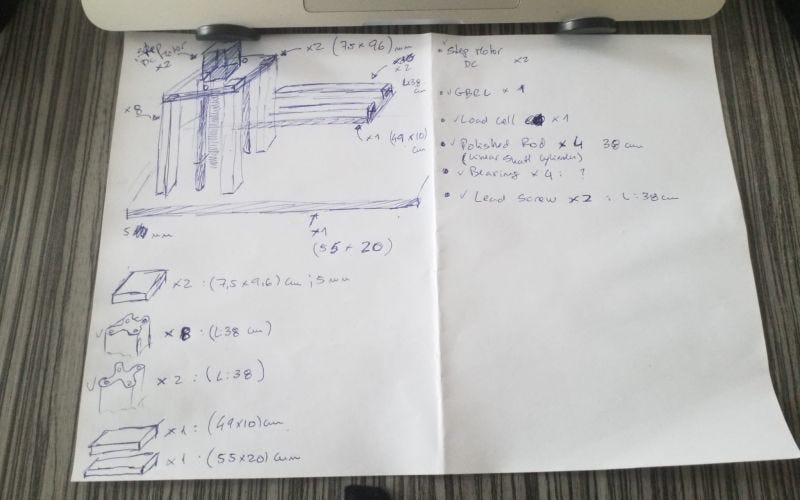 step
DC Motor
x2
x2 (75x96) mm
x2
L:38
cm
x8
x1 (49x10)
cm
5 mm
x1
(55 + 20)
x2 : (7,5x9,6) cm ; 5 mm
x 8 : (L:38 cm)
x 2 : (L:38)
x1 : (49x10) cm
x1 : (55x20) cm
step Motor
DC x2
GBRL x 1
Load cell x 1
Polished Rod x 4 38 cm
(linear shaft cylinder)
Bearing x 4 : ?
Lead Screw x2 : L:38 cm